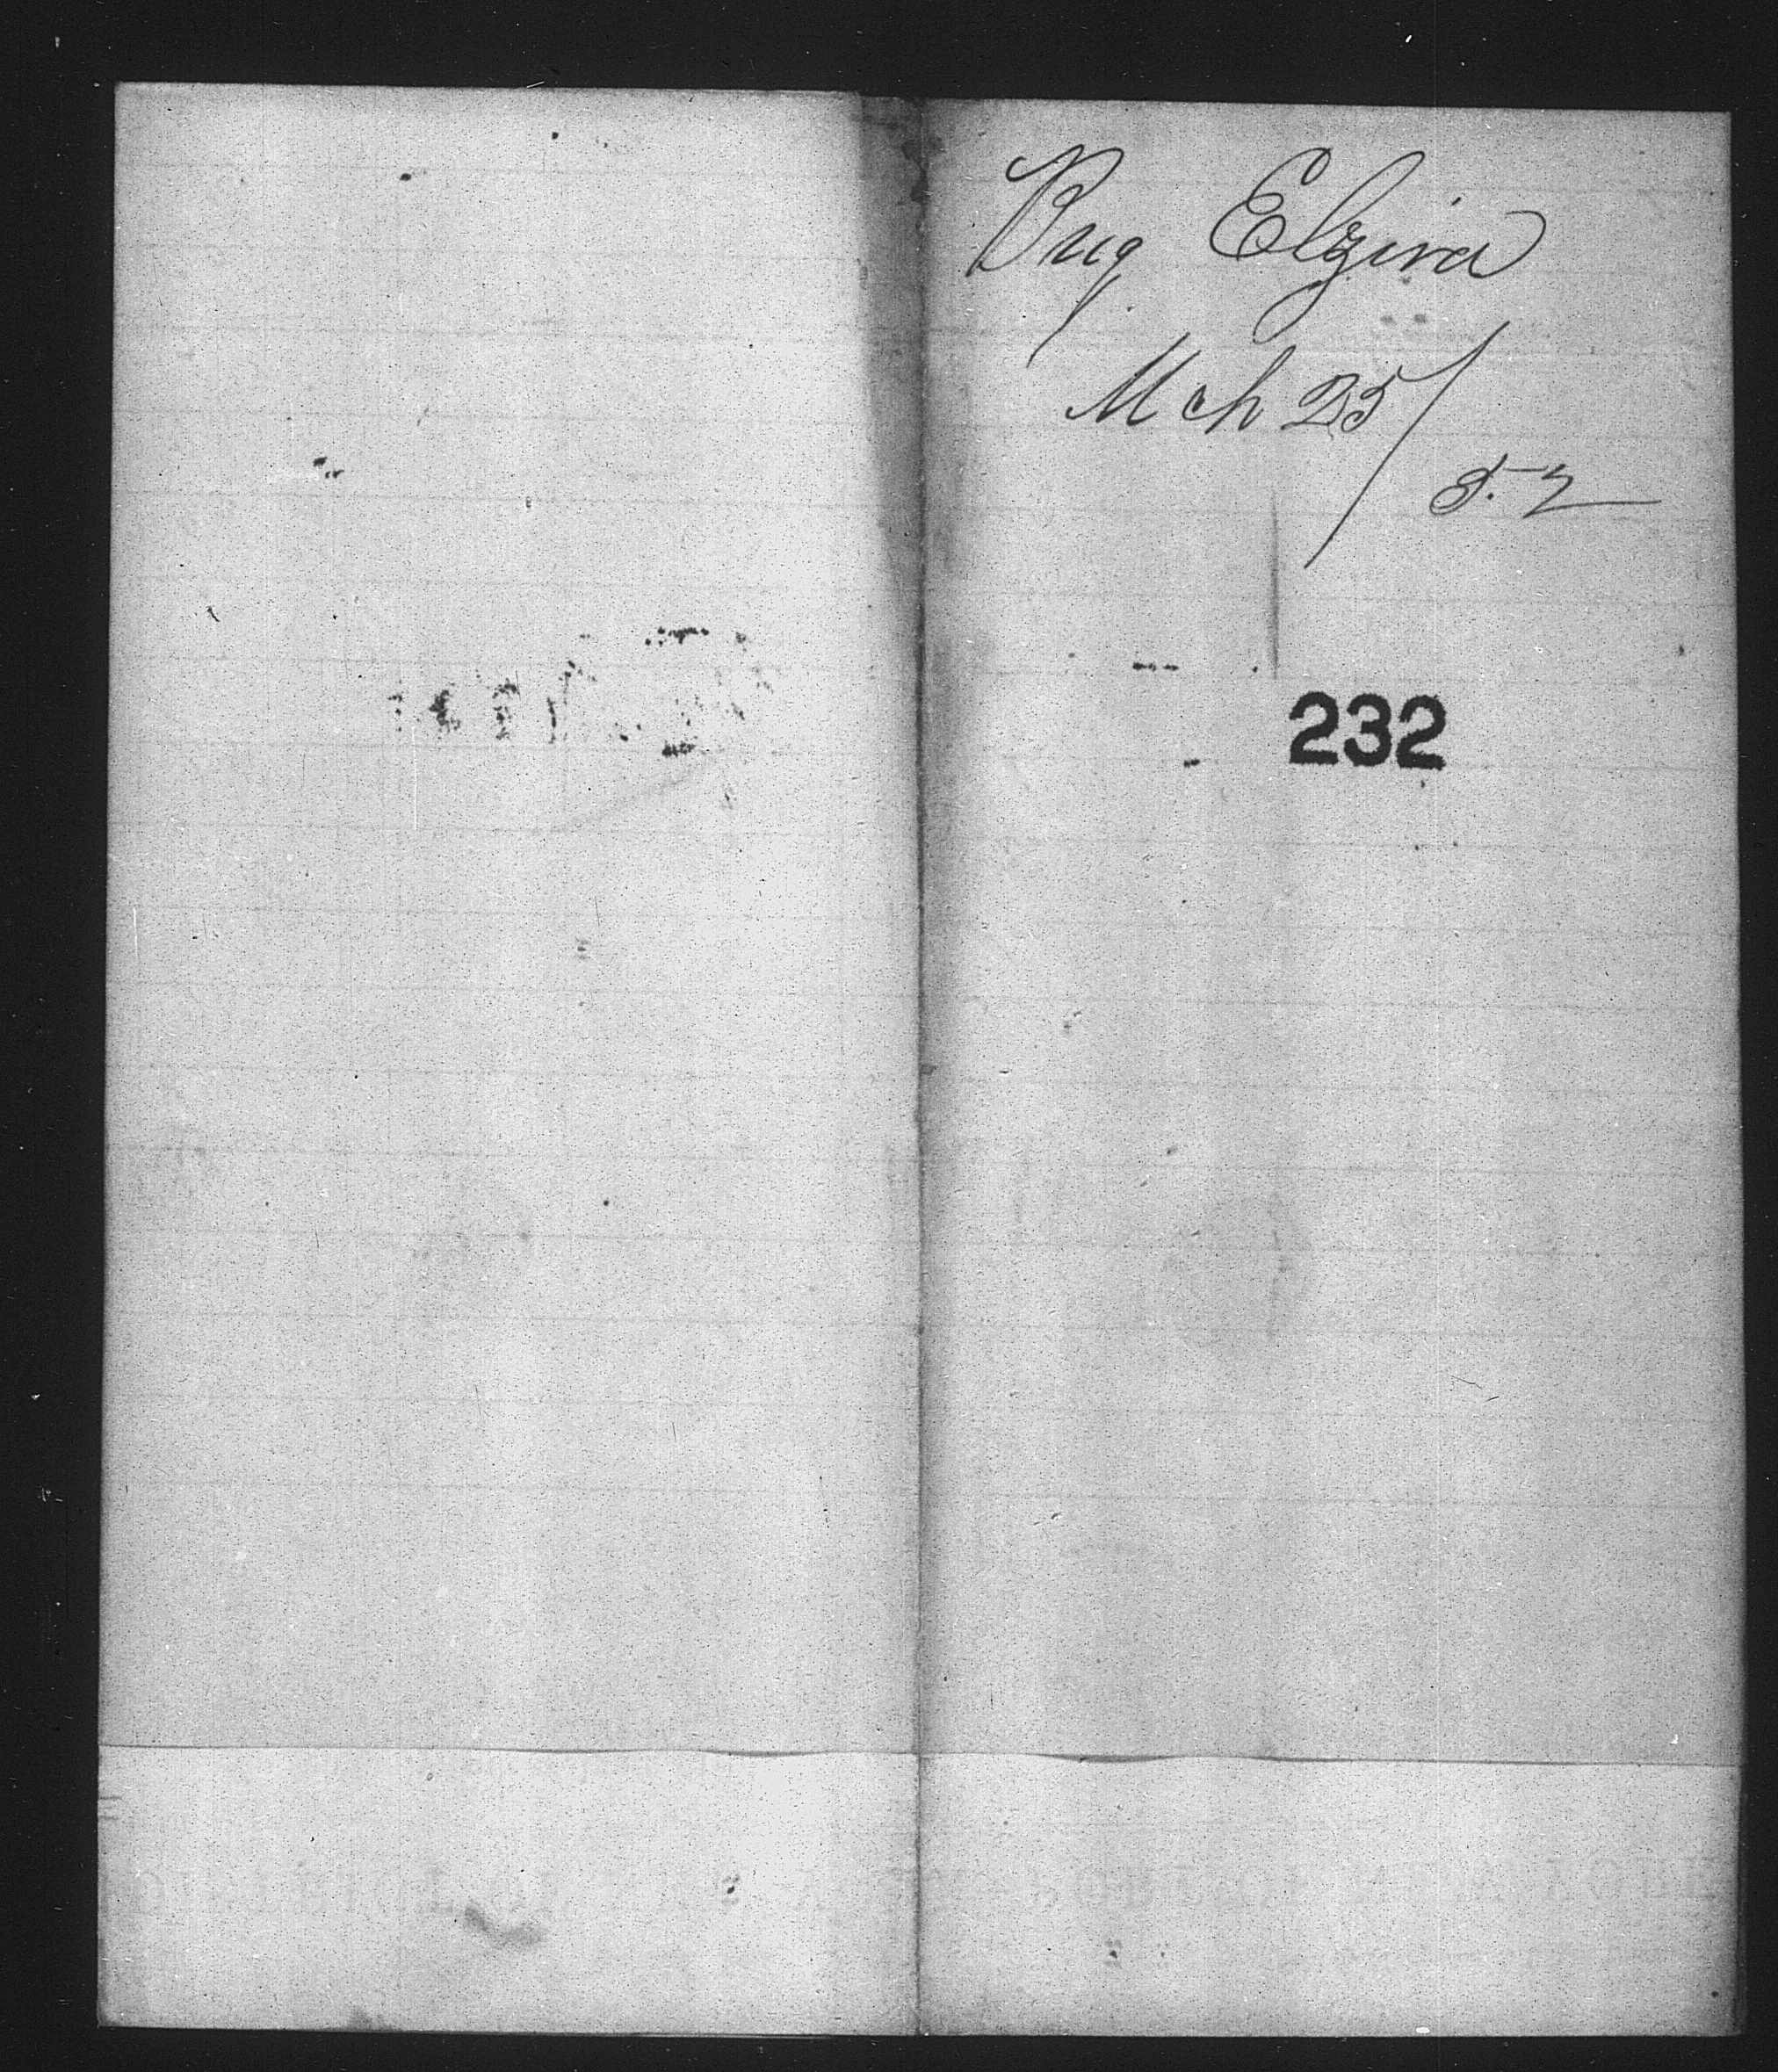 Brig Elzira
Mch 25/
52
232